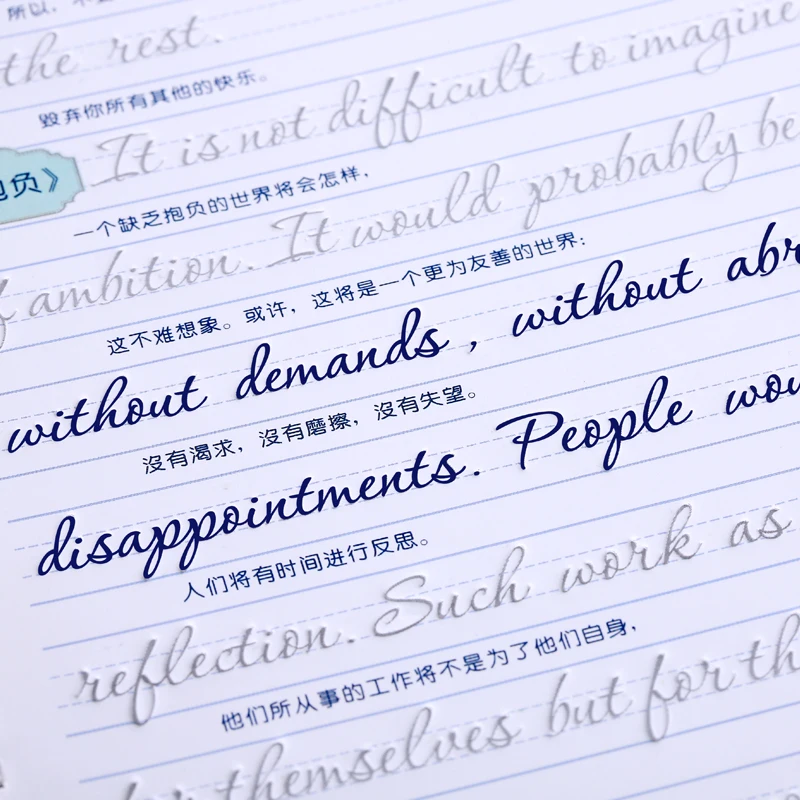 所以，
the rest.
毁弃你所有其他的快乐。
It is not difficult to imagine
抱负》
一个缺乏抱负的世界将会怎样，
ambition. It would probably be
这不难想象。或许，这将是一个更为友善的世界：
without demands , without abr
沒有渴求，沒有磨擦，沒有失望。
disappointments. People wou
人们将有时间进行反思。
reflection. Such work as
他们所从事的工作将不是为了他们自身，
themselves but for th